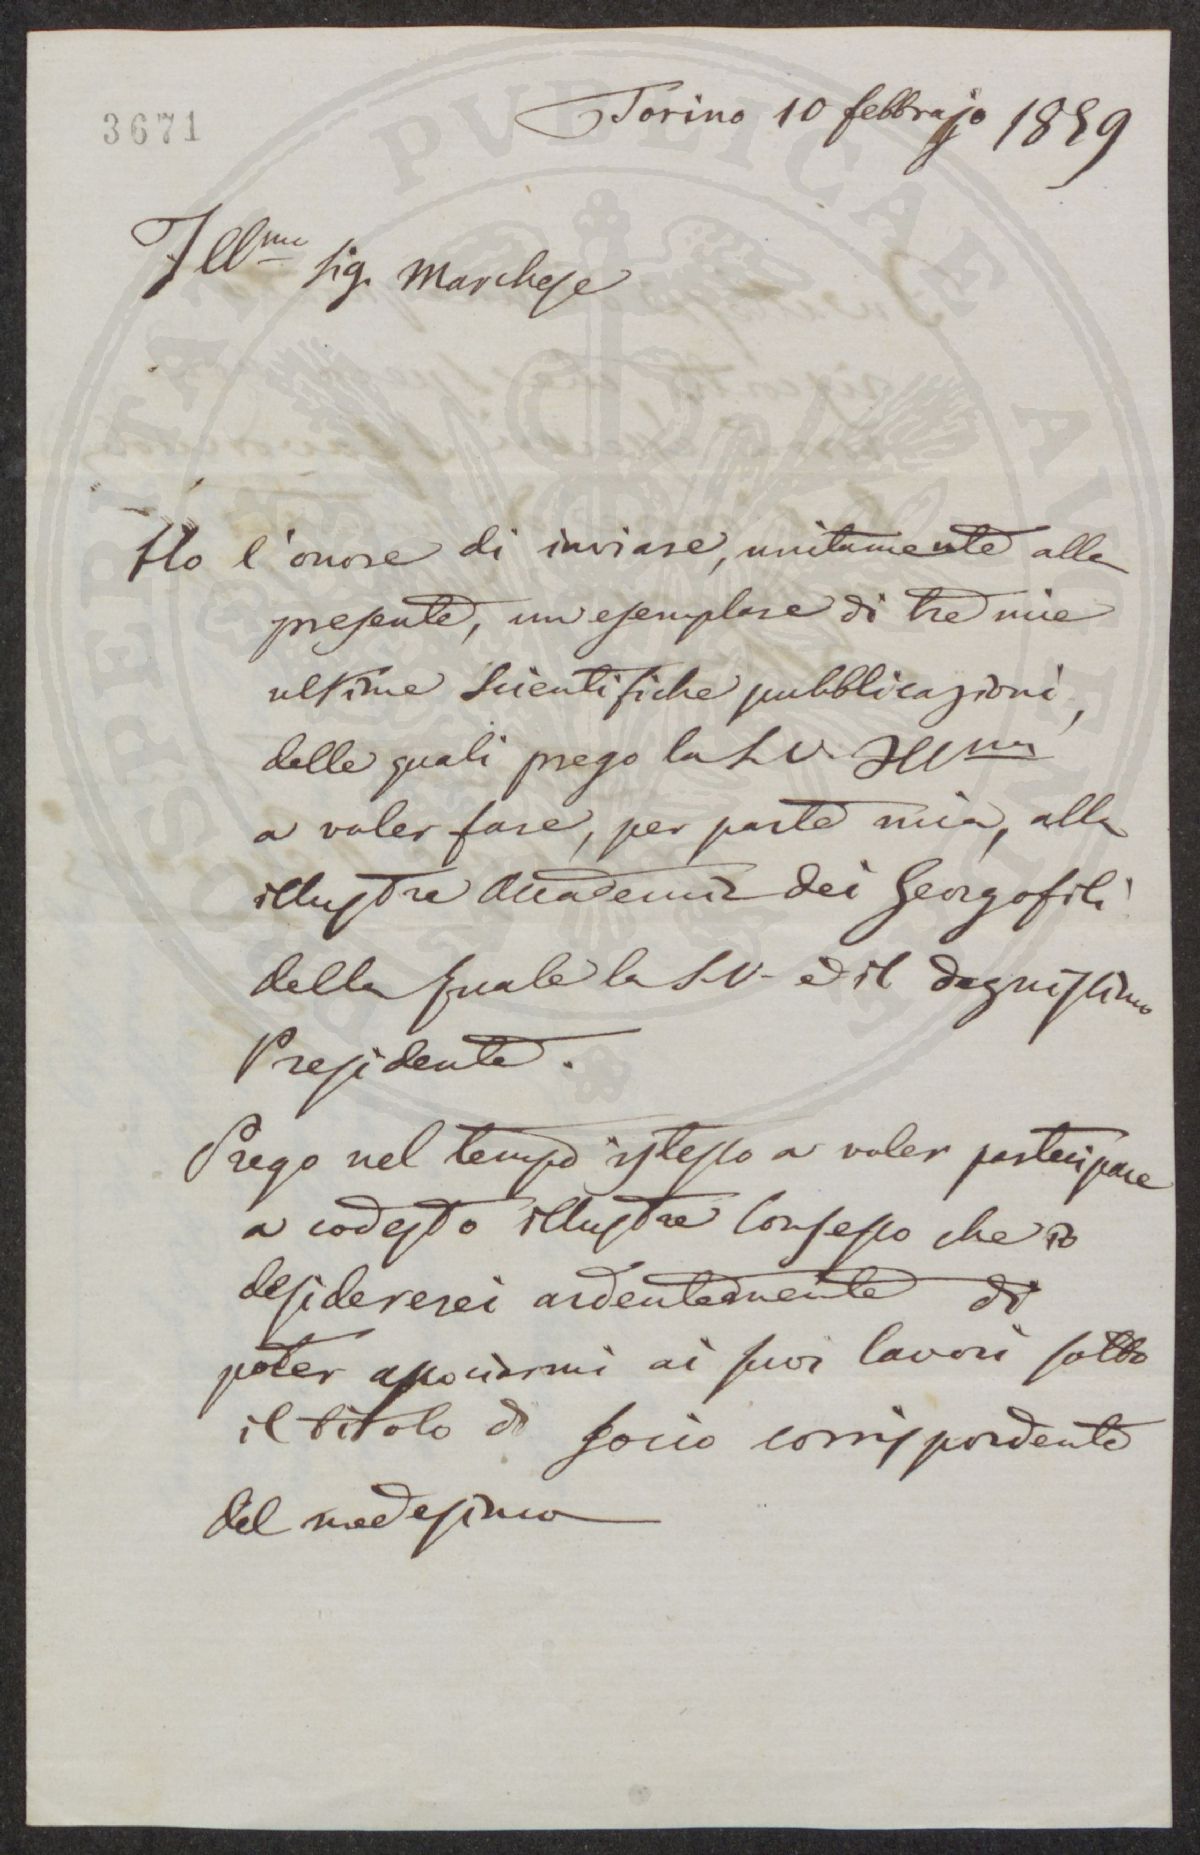 3671
Torino 10 febbrajo 1859
Ill.mo Sig. Marchese
Ho l'onore di inviare, unitamente alla
presente, un esemplare di tre mie
ultime Scientifiche pubblicazioni,
delle quali prego la S. V. Ill.ma
a voler fare, per parte mia, alla
illustre Accademia dei Georgofili
della quale la S. V. è il degnissimo
Presidente.
Prego nel tempo istesso a voler partecipare
a codesto illustre Consesso che io
desidererei ardentemente di
poter associarmi ai suoi lavori sotto
il titolo di Socio corrispondente
del medesimo
PROSPERITATI PVBLICAE AVGENDAE